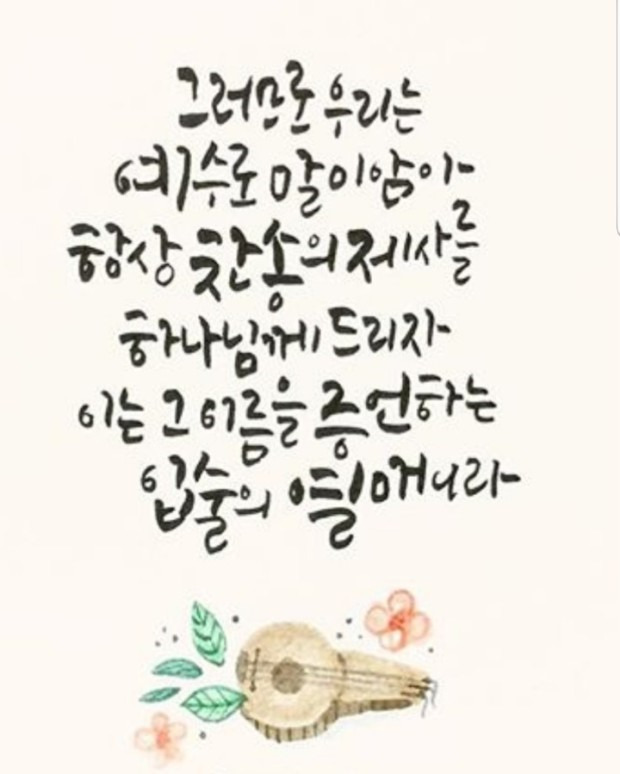 그러므로 우리는
예수로 말미암아
항상 찬송의 제사를
하나님께 드리자
이는 그 이름을 증언하는
입술의 열매니라